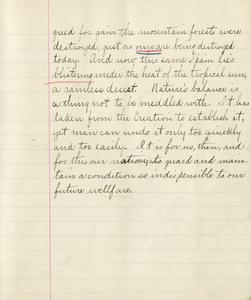 greed for gain the mountain forests were
destroyed, just as ours are being destroyed
today. And now this same Spain lies
blistering under the heat of the tropical sun,
a rainless desert. Nature's balance is
a thing not to be meddled with. It has
taken from the Creation to establish it,
yet man can undo it only too quickly
and too easily. It is for us, then, and
for this our nation, to guard and main-
tain a condition so indispensible to our
future wellfare.